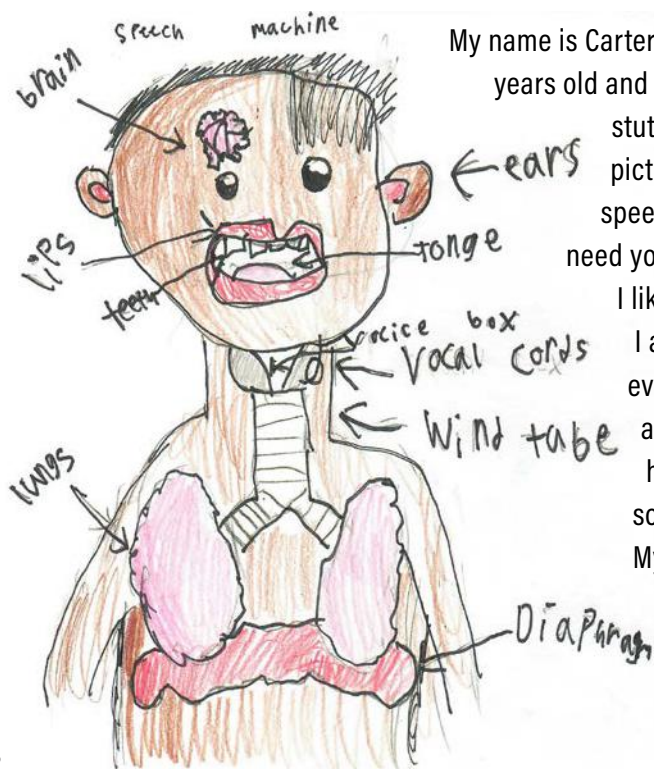 speech machine
brain
ears
lips
teeth
tonge
vocice box
vocal cords
wind tabe
lungs
Diaphragm
My name is Carter
years old and
stut
pict
spee
need yo
I lik
I a
ev
a
h
so
My